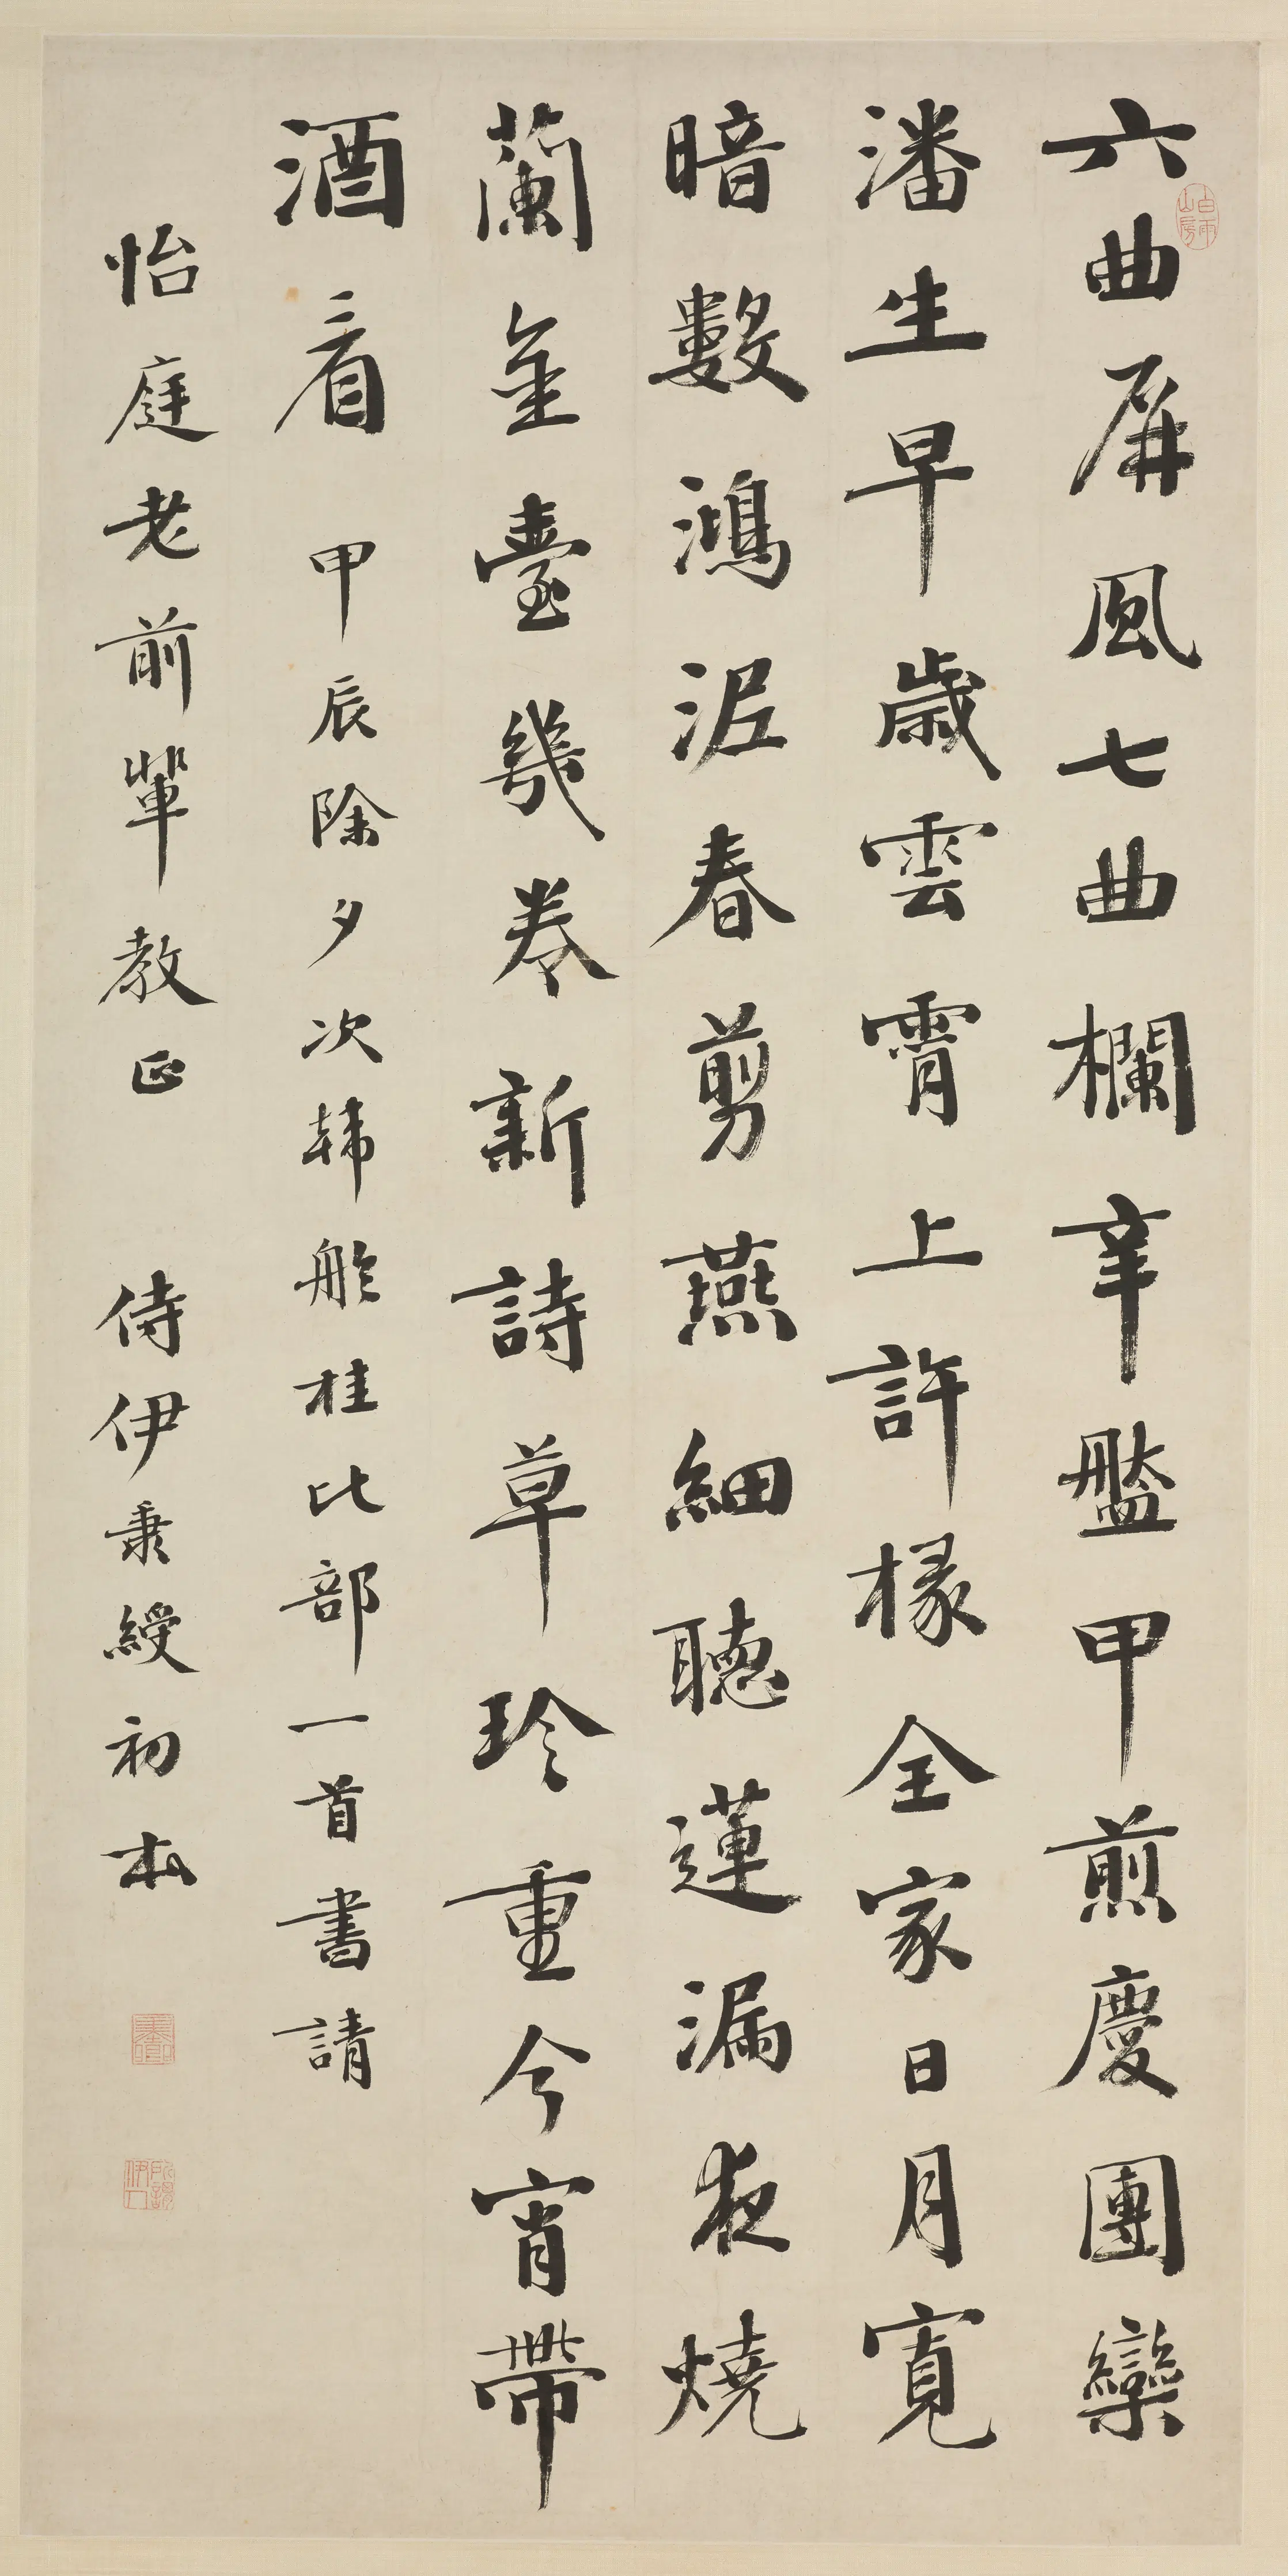 六曲屏風七曲欄辛盤甲煎慶團欒
潘生早歲雲霄上許椽全家日月寬
暗數鴻泥春剪燕細聽蓮漏夜燒
蘭金臺幾卷新詩草珍重今宵帶
酒看 甲辰除夕次韩舲桂比部一首書請
怡庭老前輩教正 侍伊秉綬初本